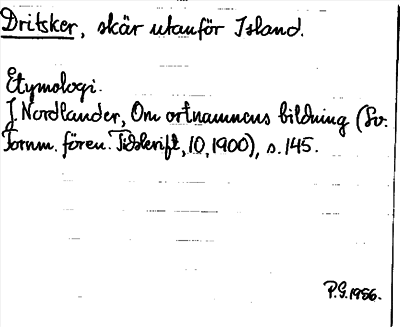 Dritsker, skär utanför Island.
Etymologi.
J. Nordlander, Om ortnamnens bildning (Sv.
Fornm. fören. Tidskrift, 10, 1900), s. 145.
P.G. 1956.